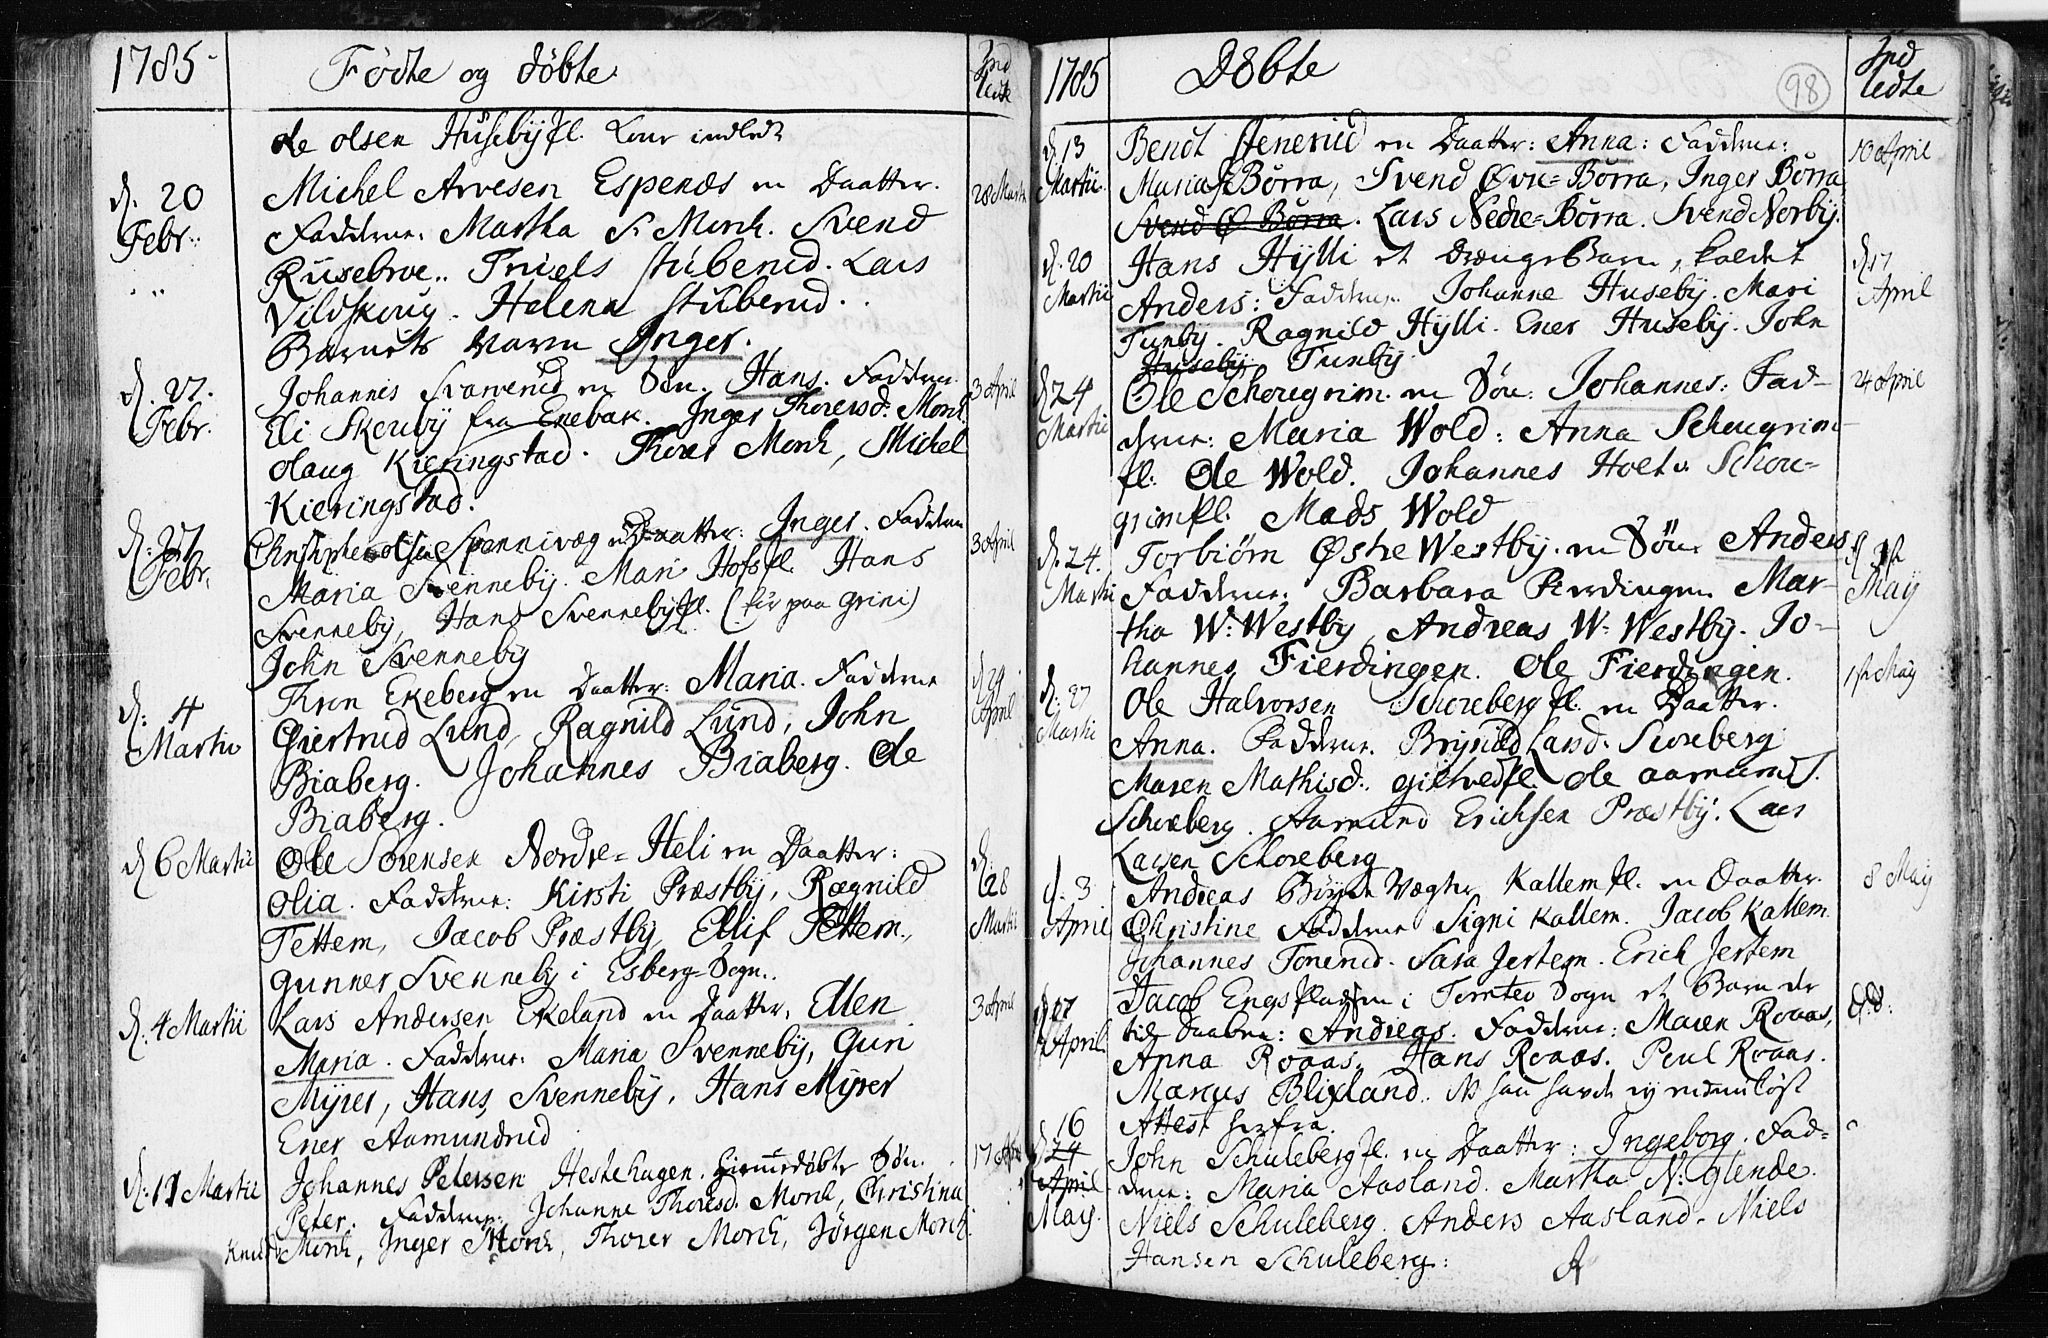 1785
Födte og döbte
Ind
ledte
Ole olsen Husebÿ fl. Kone indledt
d. 20
Febr.
Michel Arvesen Espenæs en Daatter.
28 Martii
Faddrene: Martha S. Mork. Svend
Rusebroe.. Truels Stuberud. Lars
Vildskoug. Helena Stuberud.
Barnets Navn Inger.
d. 27.
Febr.
Johannis Svarverud en Sön. Hans. Faddrene
3 April
Eli Skouby fra Enebak. Inger Thoresd. Mork
olaug Kieringstad. Thorer Mork, Michel
Kieringstad.
d. 27
Febr.
Christopher olsen Spennivæg en Daatter: Inger. Faddrene
3 April
Maria Svennebÿ. Mari Hofs fl. Hans
Svennebÿ, Hans Svennebÿ fl. ( paa Grini)
John Svennebÿ
d: 4
Martii
Thron Ekeberg en Daatter: Maria. Faddrene
d. 24
April
Giertrud Lund, Ragnild Lund, John
Biaberg. Johannes Biaberg. Ole
Biaberg.
d 6 Martii
Ole Sörensen Nordre=Heli en Daatter:
d.
28
Martii
Olia. Faddrene: Kirsti Præstbÿ, Ragnild
Tettem, Jacob Præstbÿ, Ellif Tettem,
Gunner Svennebÿ i Esberg=Sogn.
d. 4 Martii
Lars Andersen Ekeland en Daatter, Ellen
3 April
Maria. Faddrene: Maria Svennebÿ, Guri
Mÿrer, Hans Svennebÿ, Hans Mÿrer
Ener Aamundrud
d. 17 Martii
Johannes Petersen Hestehagen. hiemmedöbte Sön.
17 April
Peter. Faddrene: Johanne Thoresd. Mork, Christina
Knud Mork, Inger Mork, Thorer Mork, Jörgen Mork.
1785
Döbte
98
Ind
ledte
d. 13
Martii.
Bendt Stenerud en Daatter: Anna: Faddrene:
10 April
Maria Börra, Svend Övre=Börra, Inger Börra
Svend Ö Börra. Lars Nedre=Börra. Svend Norbÿ.
d. 20
Martii
Hans Hÿlli et Drænge Barn, kaldet
d 17
April
Anders: Faddrene. Johanne Husebÿ. Mari
Tunbÿ. Ragnild Hÿlli. Ener Husebÿ. John
Husebÿ Tunbÿ
d 24
Martii
Ole Schougrim. en Sön: Johannes: Fad-
24 April
drene: Maria Wold: Anna Schougrim-
fl. Ole Wold. Johannes Holt v. Schou=
grim fl. Mads Wold
d. 24.
Martii
Torbiörn Östre Westbÿ. en Sön Anders
d 1ste
May
Faddrene: Barbara Fierdingen Mar-
tha W: Westbÿ, Andreas W: Westbÿ. Jo-
hannes Fierdingen. Ole Fierdingen.
d. 27
Martii
Ole Halvorsen Schoreberg fl. en Daatter.
1ste May
Anna. Faddrene. Brÿnild Larsd. Scoreberg
Maren Mathisd. Giltved fl. Ole Aamund S.
Schoreberg. Aamund Erichsen Præstbÿ. Lars
Larsen Schoreberg
d. 3
April
Andreas Vægter Kallem fl. en Daatter.
8 May
Christine Faddrene Signi Kallem. Jacob Kallem.
Johannes Tonerud. Sara Jertem. Erich Jertem
d 17
April
Jacob Engs Pladsen i Tomter Sogn et Barn
til Daaben: Andreas. Faddrene: Maren Roaas,
Anna Roaas, Hans Roaas. Poul Roaas.
Marcus Blixland. NB han havde eÿ
Attest herfra.
16
d 24
April
May.
John Schuleberg fl. en Daatter: Ingeborg. Fad=
drene: Maria Aasland. Martha N: Glende.
Niels Schuleberg. Anders Aasland. Niels
Hansen Schuleberg: